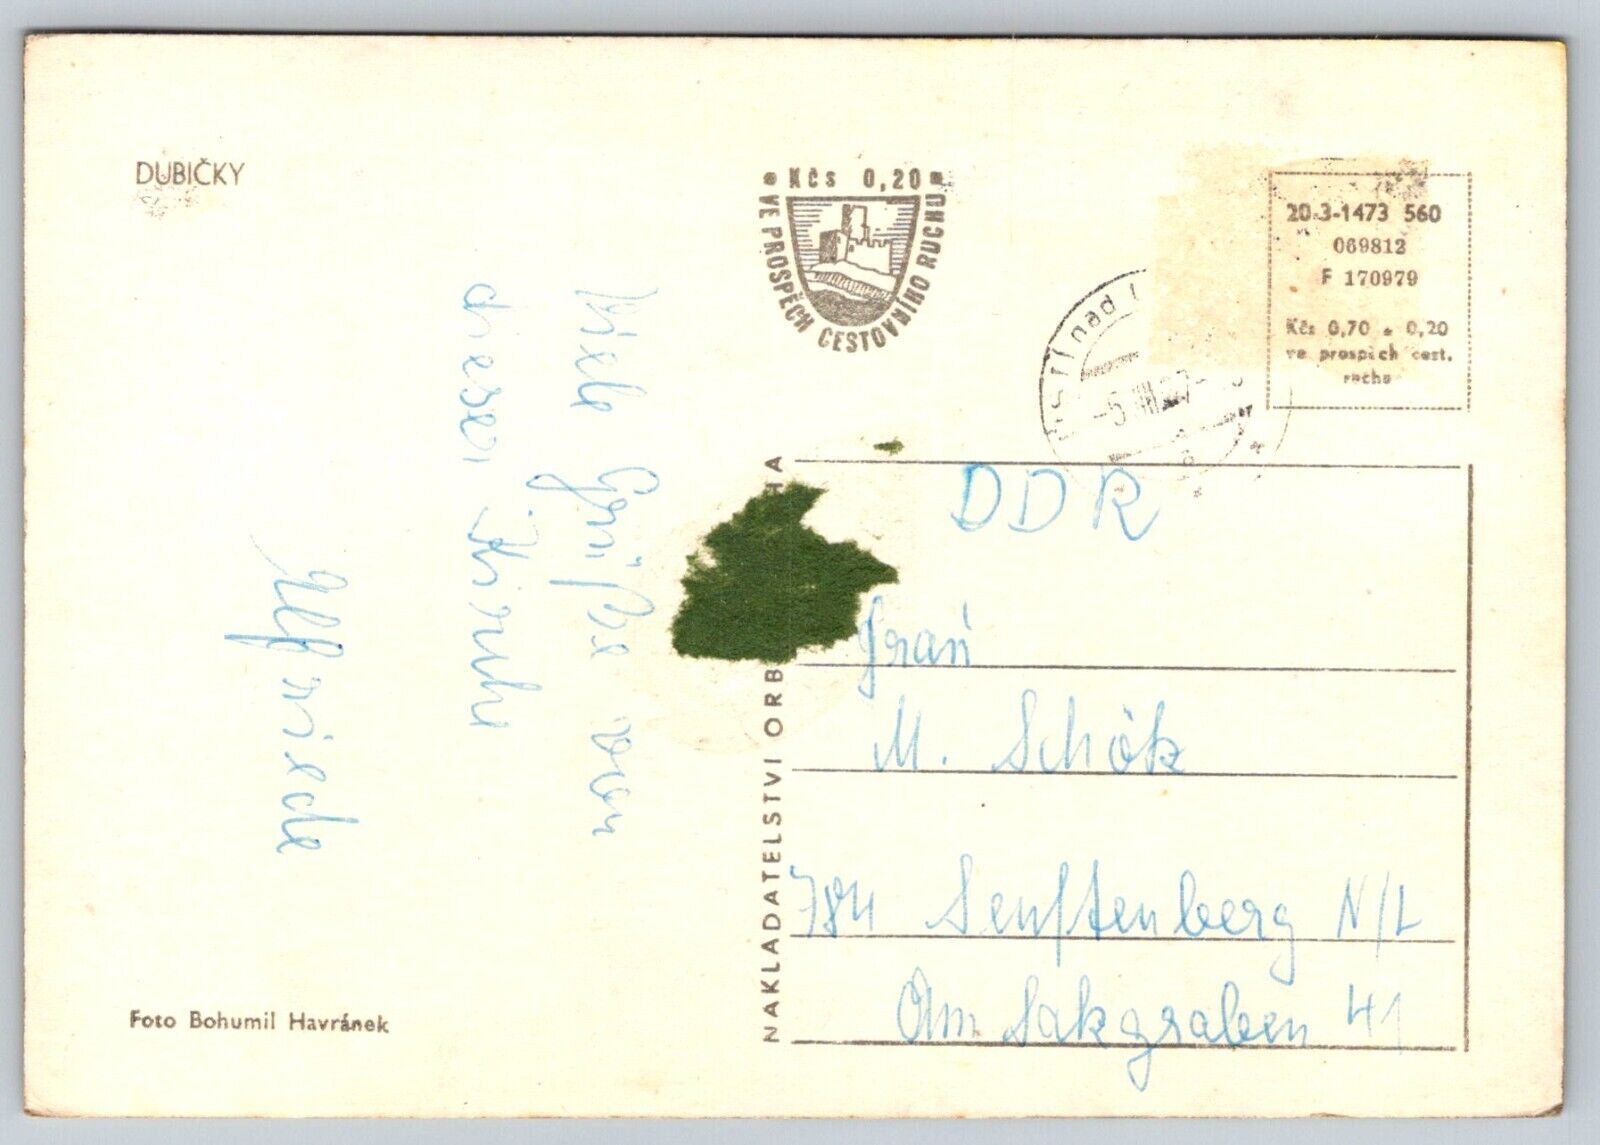 DUBIČKY
Kčs 0,20
VE PROSPĚCH CESTOVNÍHO RUCHU
20-3-1473 560
069812
F 170979
Kčs 0,70 + 0,20
ve prospěch cest.
ruchu
nad
-5.
Viele Grüße von
dieser
Elfriede
NAKLADATELSTVÍ ORB HA
DDR
Frau
M. Schök
784 Senftenberg N/L
Am Sakgraben 41
Foto Bohumil Havránek